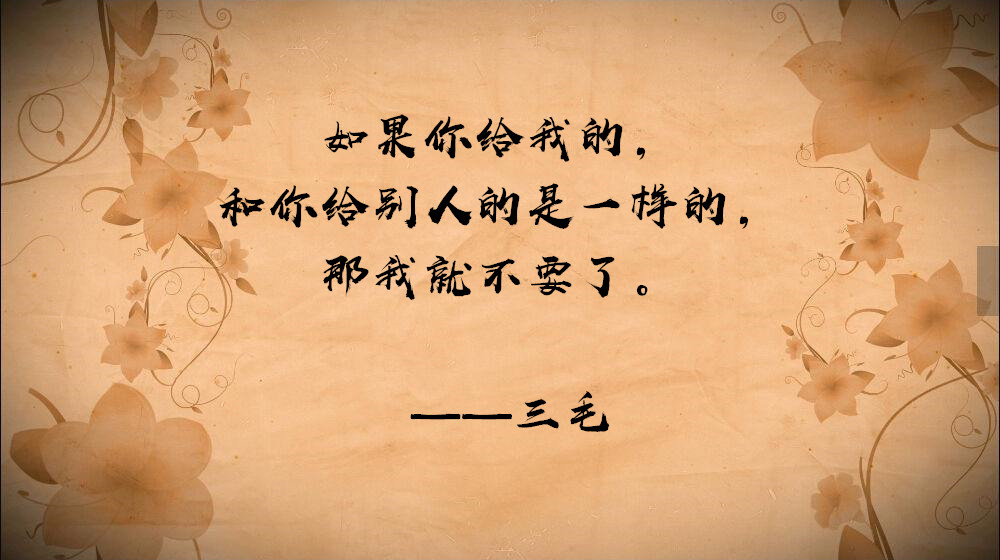 如果你给我的，
和你给别人的是一样的，
那我就不要了。
——三毛